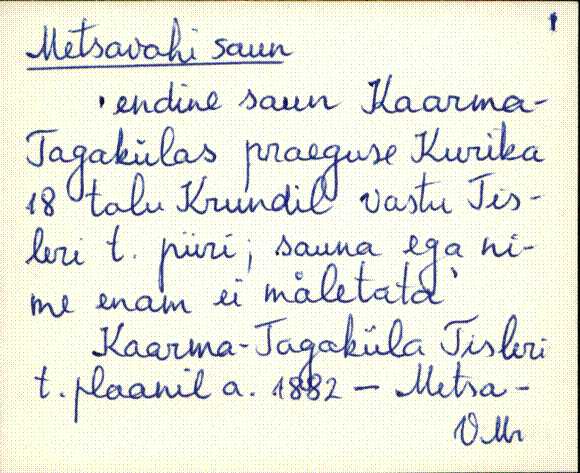 Metsavahi saun
'endine saun Kaarma-
Tagakülas praeguse Kurika
18 talu Krundil vastu Tis-
leri t. piiri; sauna ega ni-
me enam ei mäletata'
Kaarma-Tagaküla Tisleri
t. plaanil a. 1882 – Metsa-